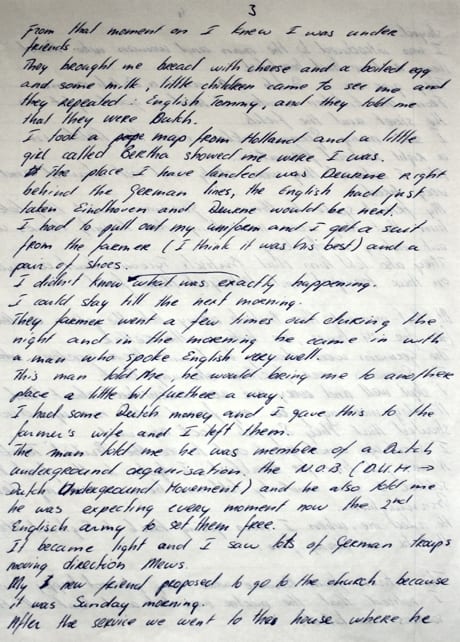 3
From that moment on I knew I was under
friends.
They brought me bread with cheese and a boiled egg
and some milk, little children came to see me and
they repeated: English Tommy, and they told me
that they were Dutch.
I took a map from Holland and a little
girl called Bertha showed me were I was.
the place I have landed was Deurne right
behind the German lines, the English had just
taken Eindhoven and Deurne would be next.
I had to pull out my uniform and I get a suit
from the farmer (I think it was his best) and a
pair of shoes.
I didn't know what was exactly happening.
I could stay till the next morning.
They farmer went a few times out during the
night and in the morning he came in with
a man who spoke English very well.
This man told me, he would being me to another
place a little bit further a way.
I had some Dutch money and I gave this to the
farmer's wife and I left them.
The man told me he was member of a Dutch
underground organisation. the N.O.B. (D.U.M. →
Dutch Underground Movement) and he also told me
he was expecting every moment now the 2nd
Englisch army to set them free.
It became light and I saw lots of German troups
moving direction Mews.
My new friend proposed to go to the church because
it was Sunday morning.
After the service we went to the house where he